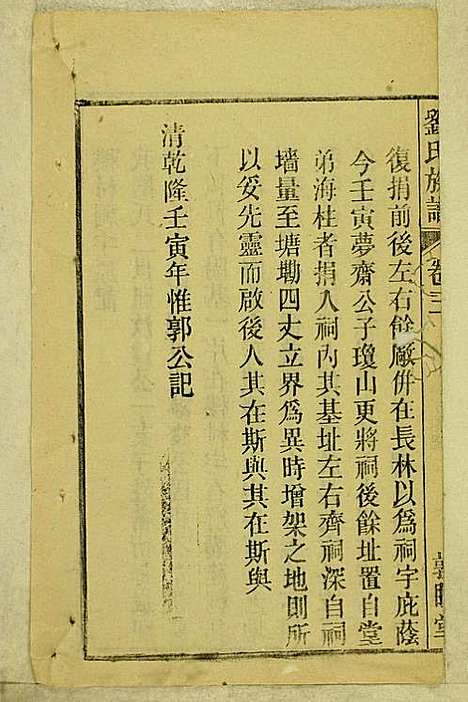 劉氏族譜
卷三
復捐前後左右餘厰併在長林以爲祠宇庇蔭
今壬寅夢齋公子瓊山更將祠後餘址置自堂
弟海柱者捐入祠內其基址左右齊祠深自祠
墻量至塘墈四丈立界爲異時增架之地則所
以妥先靈而啟後人其在斯與其在斯與
清乾隆壬寅年惟郭公記